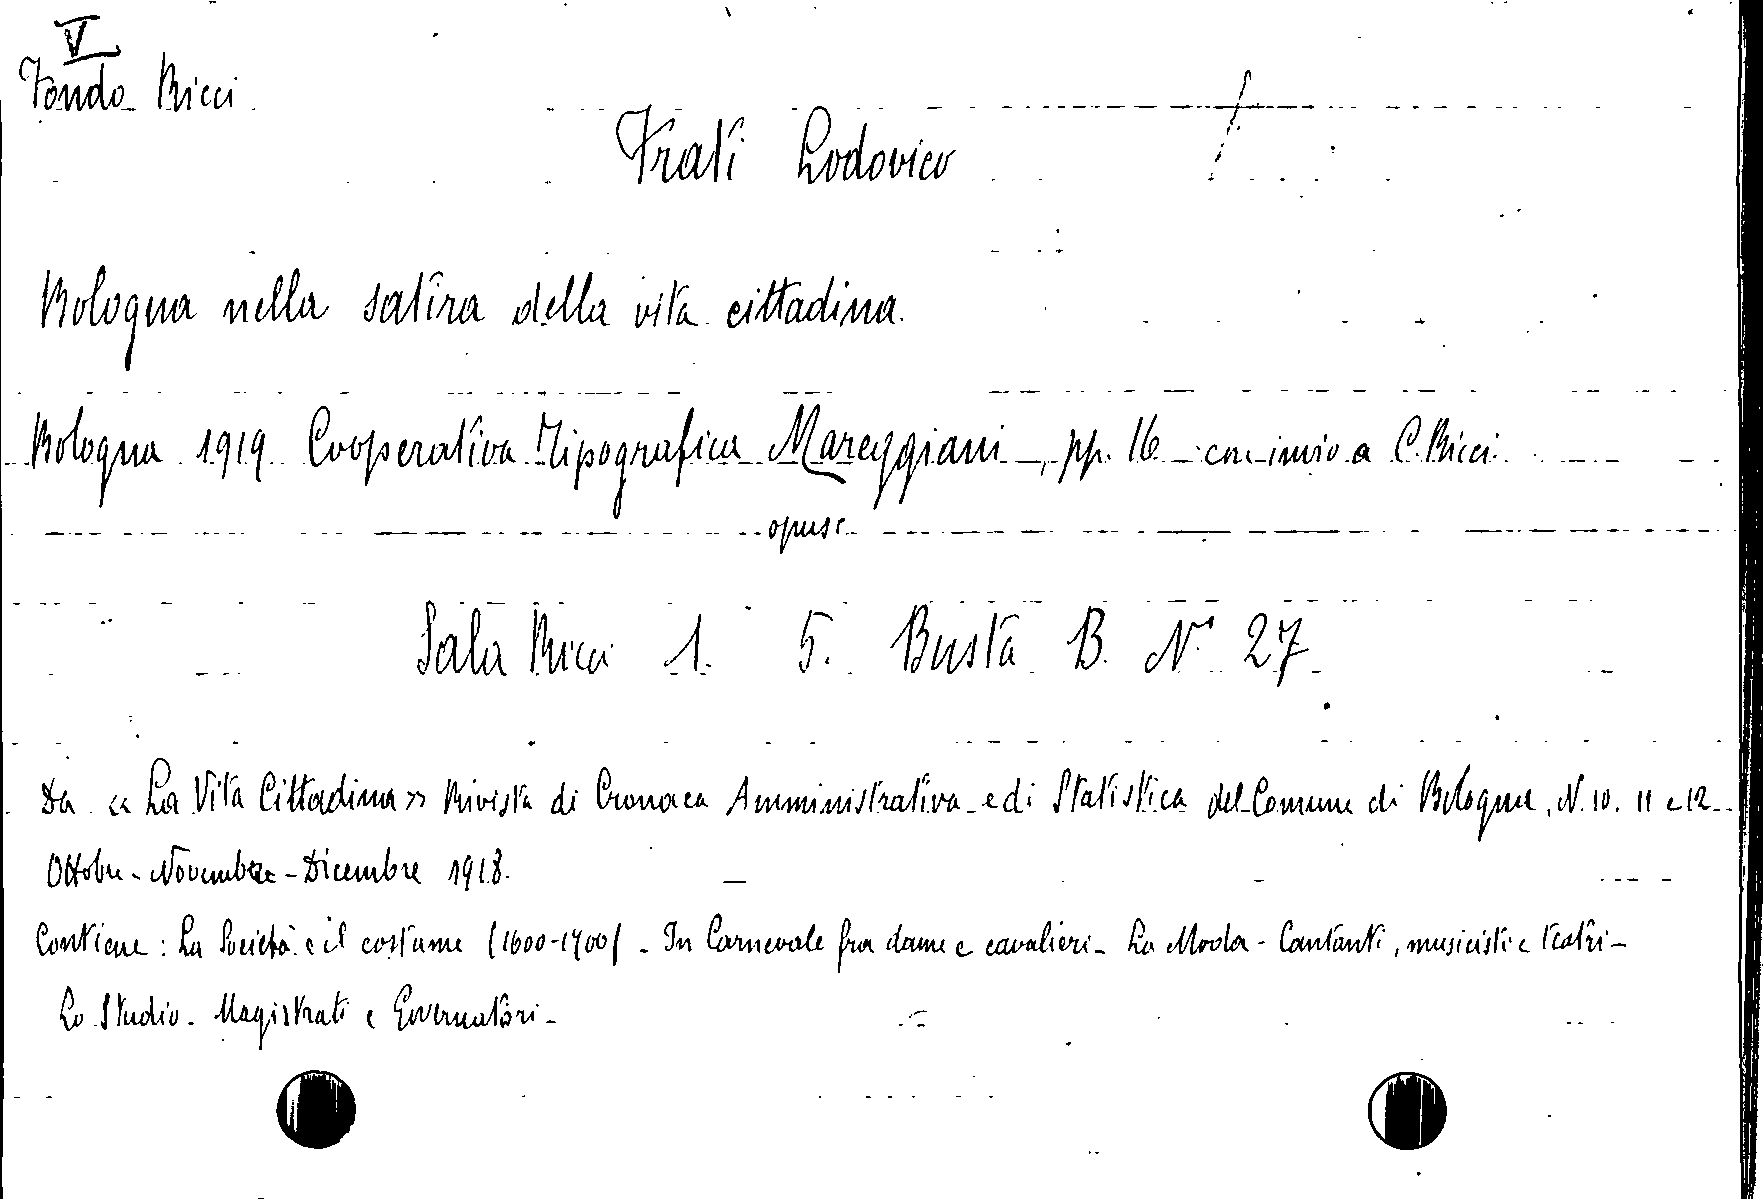 V
Fondo Ricci
Frati Lodovico
Bologna nella satira della vita cittadina.
Bologna 1919 Cooperativa Tipografica Mareggiani, pp. 16 con invio a C. Ricci
opusc.
Sala Ricci 1. 5. Busta B. N° 27
Da «La Vita Cittadina» Rivista di Cronaca Amministrativa e di Statistica del Comune di Bologna, N. 10. 11 e 12
Ottobre - Novembre - Dicembre 1918.
Contiene: La Società e il costume (1600-1700) - In Carnevale fra dame e cavalieri - La Moda - Cantanti, musicisti e teatri -
Lo Studio - Magistrati e Governatori -